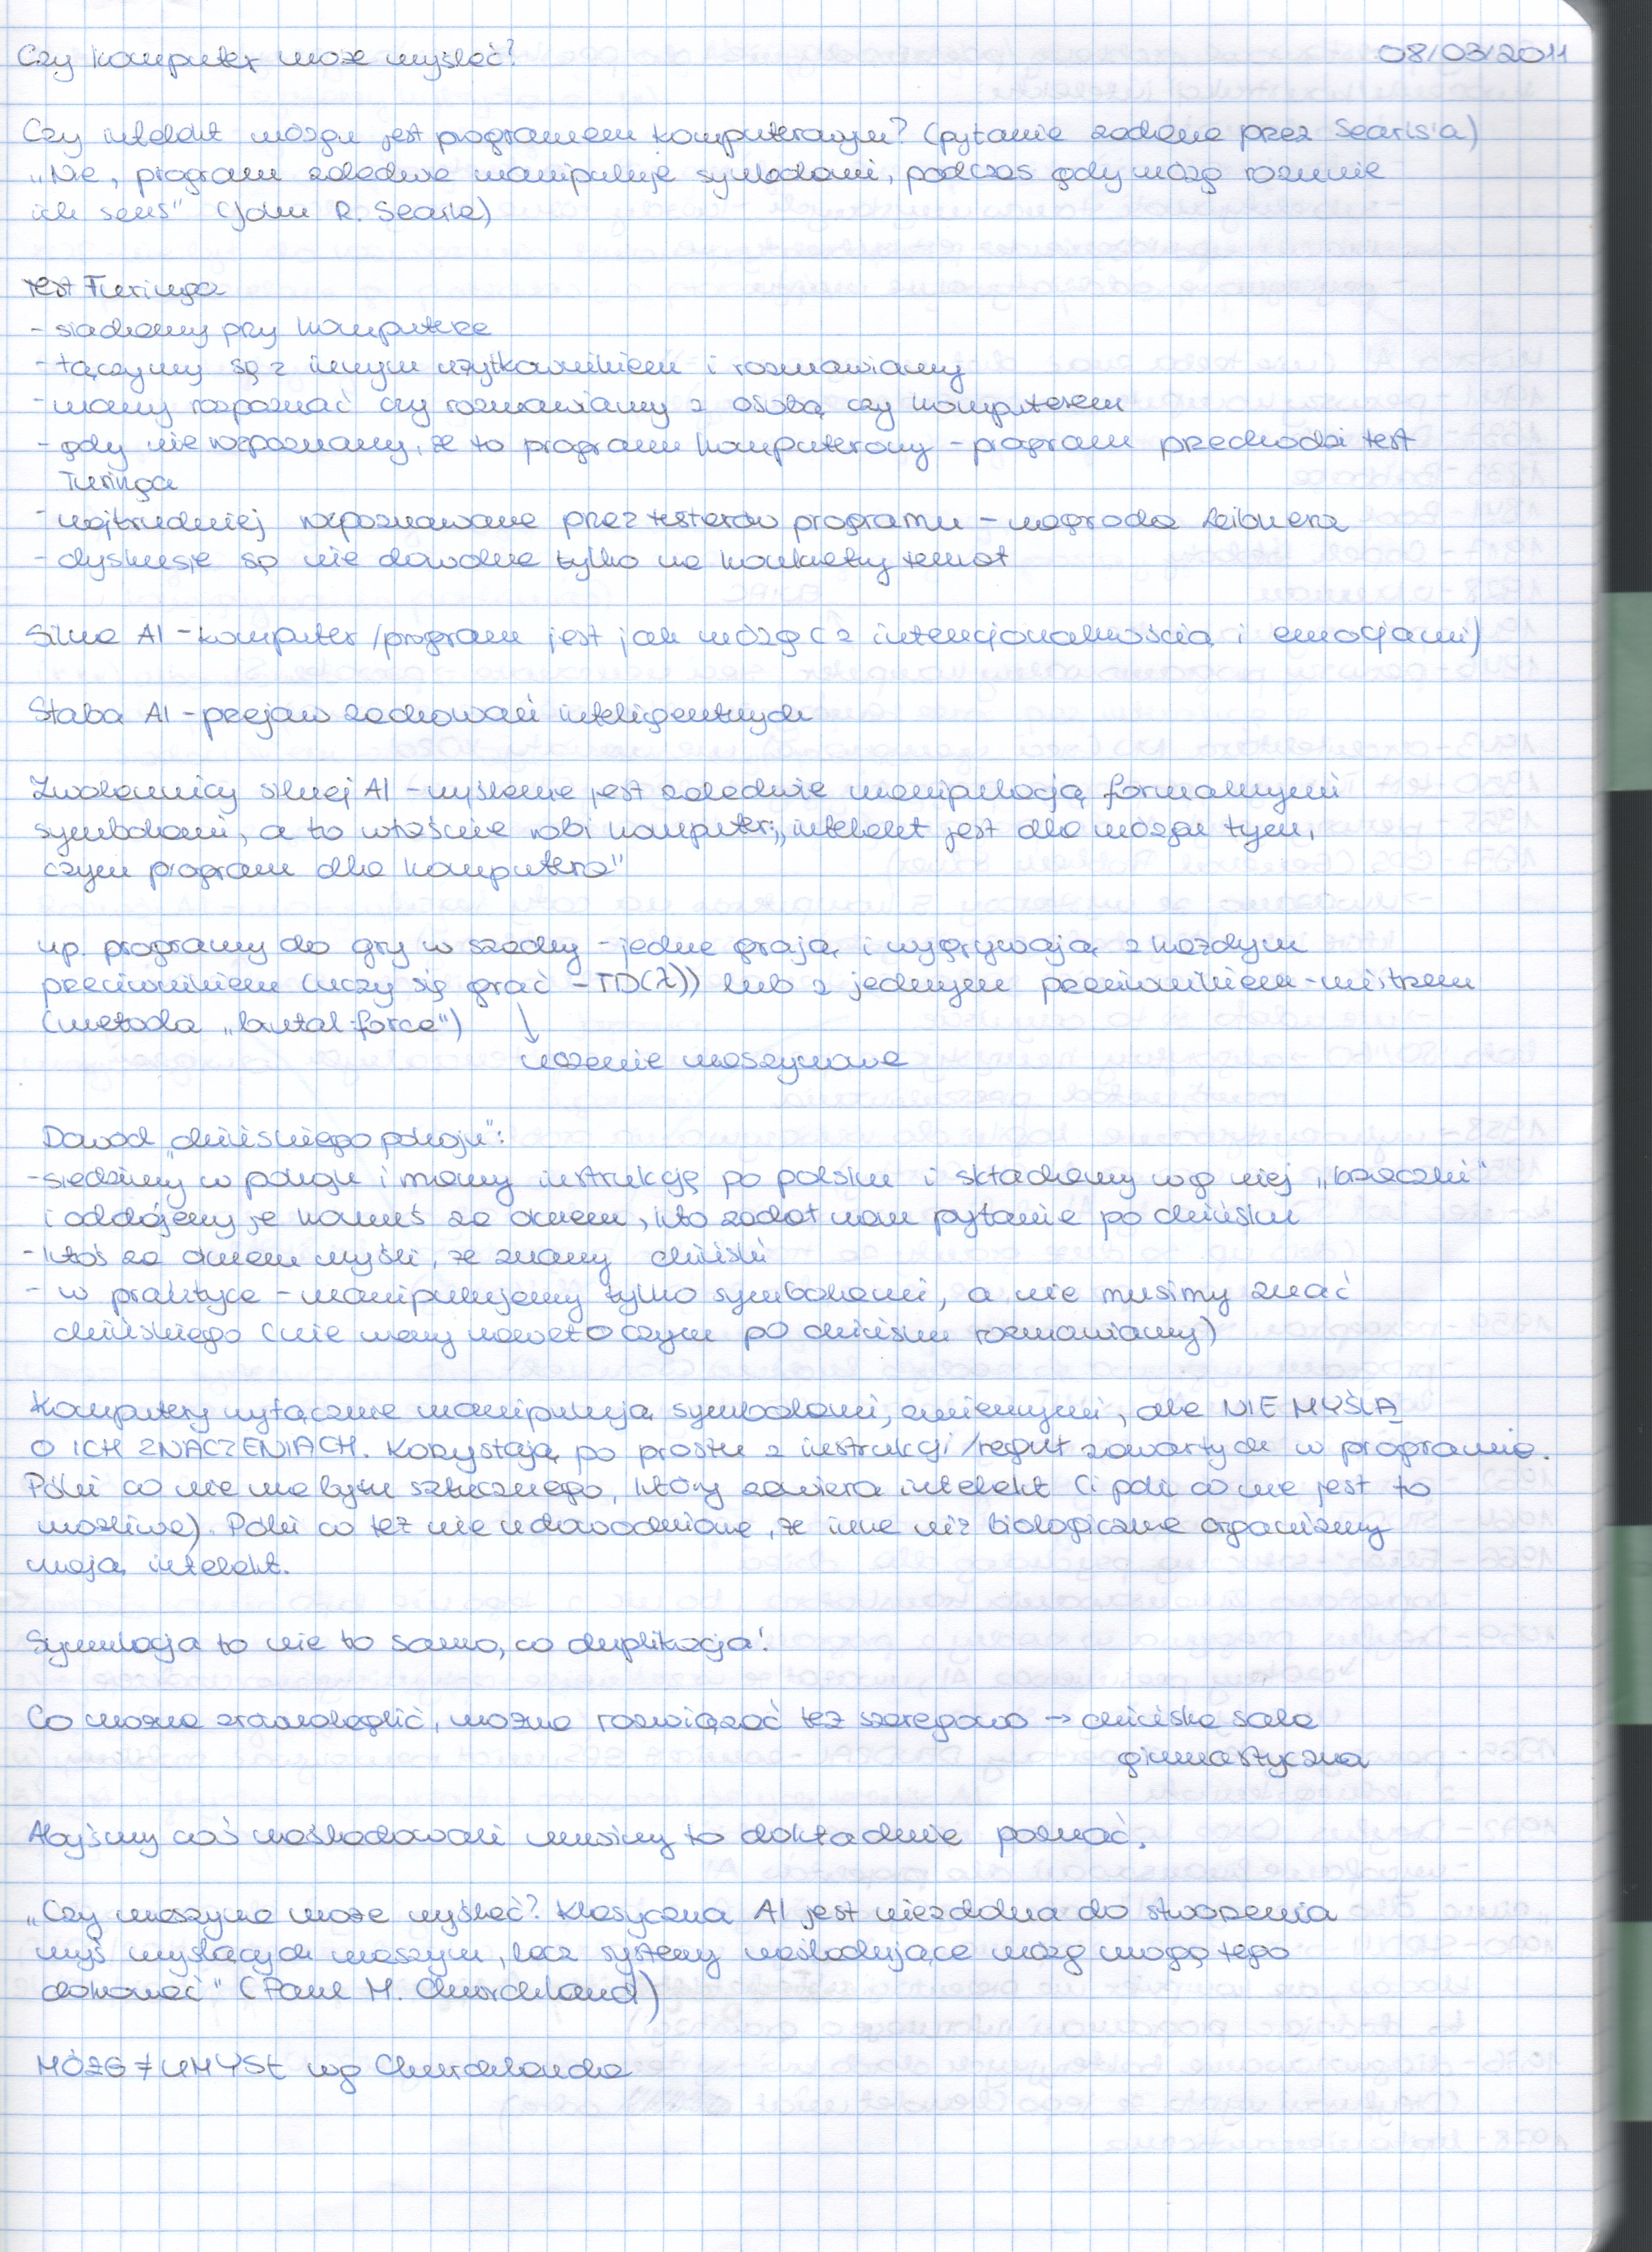 Czy komputer może myśleć? 08/03/2011
Czy intelekt mózgu jest programem komputerowym? (pytanie zadane przez Searls'a)
„Nie, program zaledwie manipuluje symbolami, podczas gdy mózg rozumie
ich sens" (John R. Searle)
Test Turinga
- siadamy przy komputerze
- łączymy się z innym użytkownikiem i rozmawiamy
- mamy rozpoznać czy rozmawiamy z osobą czy komputerem
- gdy nie rozpoznamy, że to program komputerowy - program przechodzi test
Turinga
- najtrudniej rozpoznawane przez testerów programu - nagroda Leibnera
- dyskusje są nie dowolne tylko na konkretny temat
Silna AI - komputer/program jest jak mózg (z intencjonalnością i emocjami)
Słaba AI - przejaw zachowań inteligentnych
Zwolennicy silnej AI - myślenie jest zaledwie manipulacją formalnymi
symbolami, a to właśnie robi komputer; „intelekt jest dla mózgu tym,
czym program dla komputera"
np. programy do gry w szachy - jedne grają i wygrywają z każdym
przeciwnikiem (uczy się grać - TD(λ)) lub z jednym przeciwnikiem-mistrzem
(metoda „brutal-force") ↓
uczenie maszynowe
Dowód „chińskiego pokoju":
- siedzimy w pokoju i mamy instrukcję po polsku i składamy wg niej „krzaczki"
i oddajemy je komuś za oknem, kto zadał nam pytanie po chińsku
- ktoś za oknem myśli, że znamy chiński
- w praktyce - manipulujemy tylko symbolami, a nie musimy znać
chińskiego (nie wiemy nawet o czym po chińsku rozmawiamy)
Komputery wyłącznie manipulują symbolami, zmiennymi, ale NIE MYŚLĄ
O ICH ZNACZENIACH. Korzystają po prostu z instrukcji/reguł zawartych w programie.
Póki co nie ma bytu sztucznego, który zawiera intelekt (i póki co nie jest to
możliwe). Póki co też nie udowodniono, że inne niż biologiczne organizmy
mają intelekt.
Symulacja to nie to samo, co duplikacja!
Co można zrównoleglić, można rozwiązać też szeregowo → chińska sala
gimnastyczna
Abyśmy coś naśladowali musimy to dokładnie poznać.
„Czy maszyna może myśleć? Klasyczna AI jest niezdolna do stworzenia
myś myślących maszyn, lecz systemy naśladujące mózg mogą tego
dokonać" (Paul M. Churchland)
MÓZG ≠ UMYSŁ wg Churchlanda